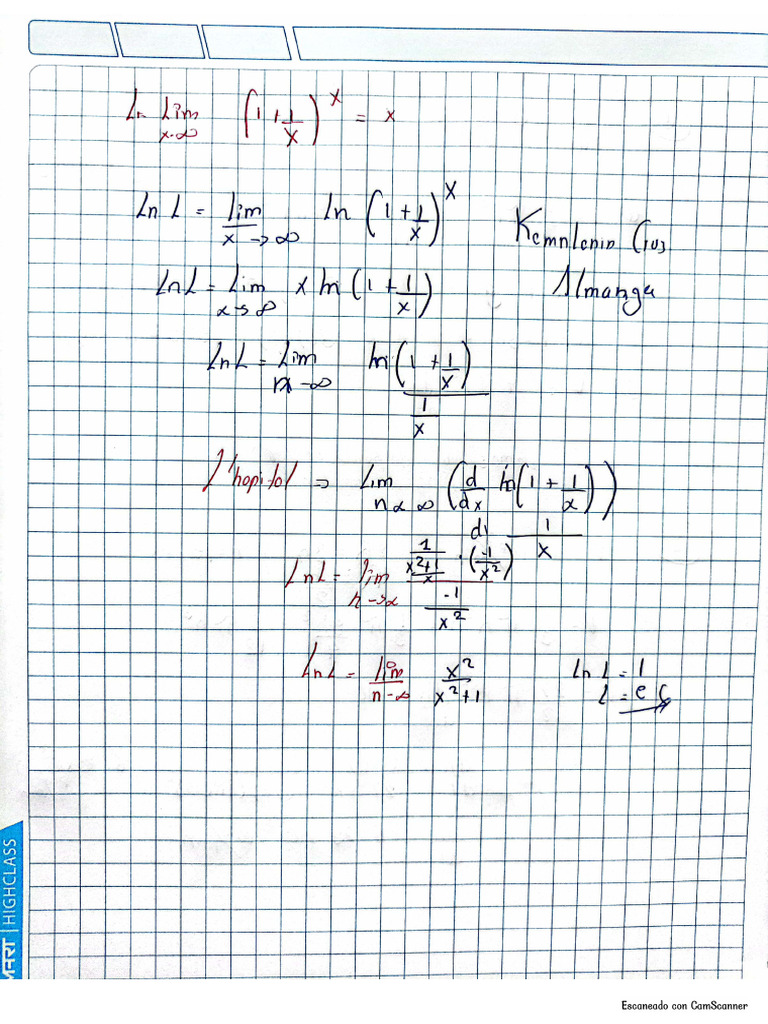 Ln Lim x→∞ (1 + 1/x)^x = x
Ln L = lim x→∞ ln (1 + 1/x)^x
LnL = Lim x→∞ x ln (1 + 1/x)
LnL = Lim x→∞ ln(1 + 1/x) / (1/x)
l'hopital = Lim n→∞ (d/dx ln(1 + 1/x)) / (d 1/x)
LnL = lim n→∞ (1/((x²+1)/x) · (-1/x²)) / (-1/x²)
LnL = lim n→∞ x²/(x²+1)
ln L = 1
L = e
HIGHCLASS
Escaneado con CamScanner